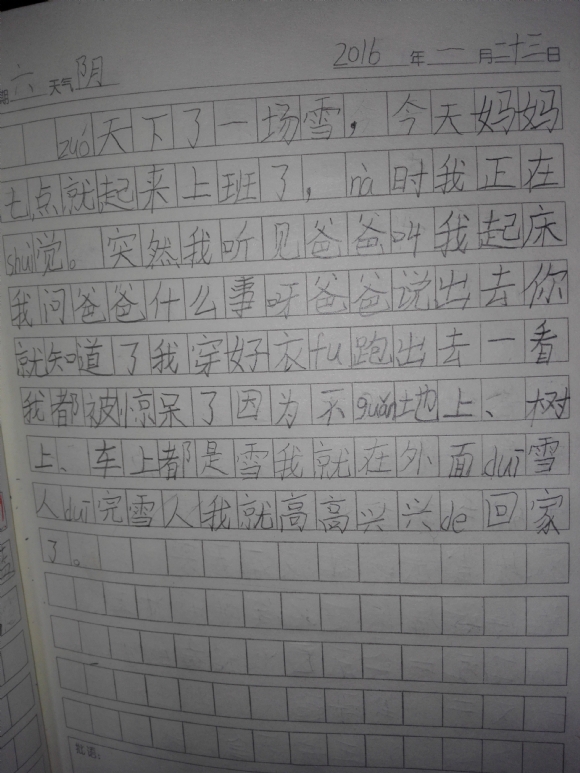 期 六 天气 阴 2016 年 一 月 二十三 日
zuó天下了一场雪，今天妈妈
七点就起来上班了，nà时我正在
shuì觉。突然我听见爸爸叫我起床
我问爸爸什么事呀爸爸说出去你
就知道了我穿好衣fu跑出去一看
我都被惊呆了因为不guǎn地上、树
上、车上都是雪我就在外面duī雪
人duī完雪人我就高高兴兴de回家
了。
批语：